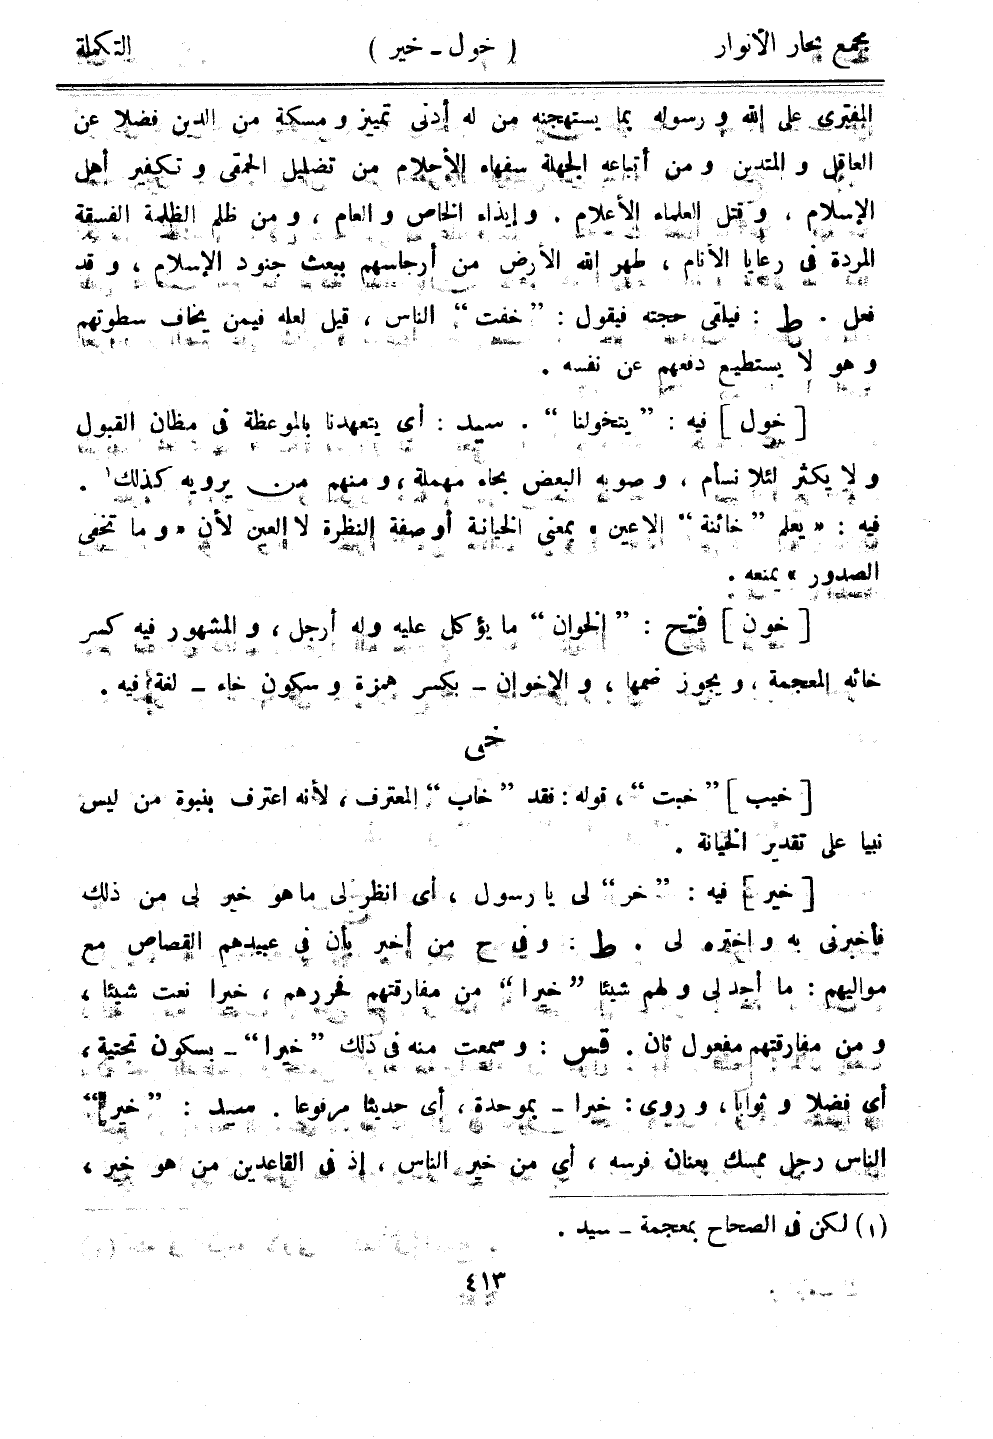 مجمع بحار الأنوار ( خول ـ خير ) التكملة
المفترى على الله و رسوله بما يستهجنه من له أدنى تمييز و مسكة من الدين فضلا عن
العاقل و المتدين و من أتباعه الجهلة سفهاء الأحلام من تضليل الحمقى و تكفير أهل
الإسلام ، و قتل العلماء الأعلام . و إيذاء الخاص و العام ، و من ظلم الظلمة الفسقة
المردة فى رعايا الأنام ، طهر الله الأرض من أرجاسهم ببعث جنود الإسلام ، و قد
فعل . ط : فيلقى حجته فيقول : ”خفت“ الناس ، قيل لعله فيمن يخاف سطوتهم
و هو لا يستطيع دفعهم عن نفسه .
[ خول ] فيه : ”يتخولنا“ . سيد : أى يتعهدنا بالموعظة فى مظان القبول
و لا يكثر لئلا نسأم ، و صوبه البعض بحاء مهملة ، و منهم من يرويه كذلك١ .
فيه : « يعلم ”خائنة“ الاعين » بمعنى الخيانة أو صفة النظرة لا العين لأن « و ما تخفى
الصدور » يمنعه .
[ خون ] فتح : ”الخوان“ ما يؤكل عليه وله أرجل ، و المشهور فيه كسر
خائه المعجمة ، و يجوز ضمها ، و الإخوان ـ بكسر همزة و سكون خاء ـ لغة فيه .
خى
[ خيب ] ”خبت“ ، قوله : فقد ”خاب“ المعترف ، لأنه اعترف بنبوة من ليس
نبيا على تقدير الخيانة .
[ خير ] فيه : ”خر“ لى يا رسول ، أى انظر لى ما هو خير لى من ذلك
فأخبرنى به و اختره لى . ط : و فى ح من أخبر بأن فى عبيدهم القصاص مع
مواليهم : ما أجد لى و لهم شيئا ”خيرا“ من مفارقتهم فحررهم ، خيرا نعت شيئا ،
و من مفارقتهم مفعول ثان . قس : و سمعت منه فى ذلك ”خيرا“ ـ بسكون تحتية ،
أي فضلا و ثوابا ، و روى : خبرا ـ بموحدة ، أى حديثا مرفوعا . سيد : ”خير“
الناس رجل ممسك بعنان فرسه ، أي من خير الناس ، إذ فى القاعدين من هو خير ،
(١) لكن فى الصحاح بمعجمة ـ سيد .
٤١٣